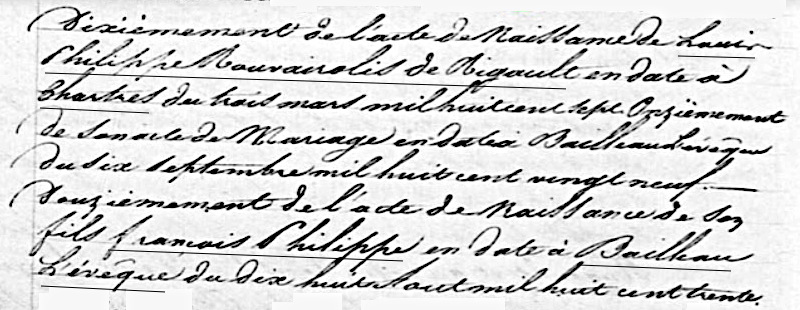 Dixièmement de l'acte de Naissance de Louis
Philippe Rouvairolis de Rigault en date à
Chartres du trois mars mil huit cent sept Onzièmement
de son acte de Mariage en date à Bailleau L'évêque
du six septembre mil huit cent vingt neuf.
Douzièmement de l'acte de Naissance de son
fils françois Philippe en date à Bailleau
L'évêque du dix huit Aout mil huit cent trente.